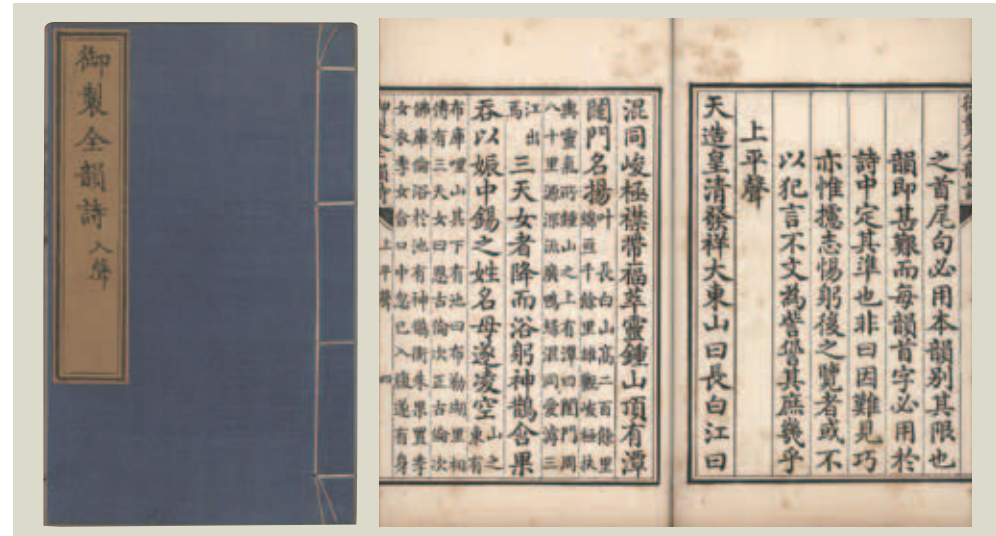 御製全韻詩 入聲
之首尾句必用本韻別其限也
韻即甚艱而每韻首字必用於
詩中定其準也非曰因難見巧
亦惟攄志惕躬後之覽者或不
以犯言不文為訾謷其庶幾乎
上平聲
天造皇清發祥大東山曰長白江曰
混同峻極襟帶福萃靈鍾山頂有潭
闥門名揚叶 長白山高二百餘里
綿亘千餘里雄觀峻極扶
輿靈氣所鍾山之上有潭曰闥門周
八十里源深流廣鴨綠混同愛滹三
江出
焉 三天女者降而浴躬神鵲含果
吞以娠中錫之姓名母遂凌空 山之
東有
布庫哩山其下有池曰布勒瑚里相
傳有三天女曰恩古倫次正古倫次
佛庫倫浴於池有神鵲銜朱果置季
女衣季女含口中忽已入腹遂有身
上平聲 四